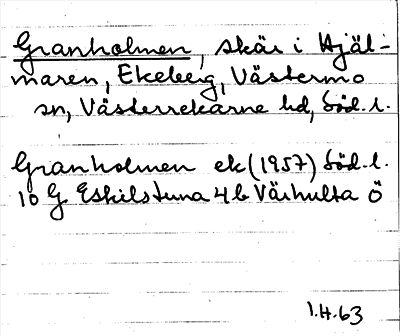 Granholmen, skär i Hjäl-
maren, Ekeberg, Västermo
sn, Västerrekarne hd, Söd. l.
Granholmen ek (1957) Söd. l.
10 G Eskilstuna 4 b Värhulta Ö
I.H. 63